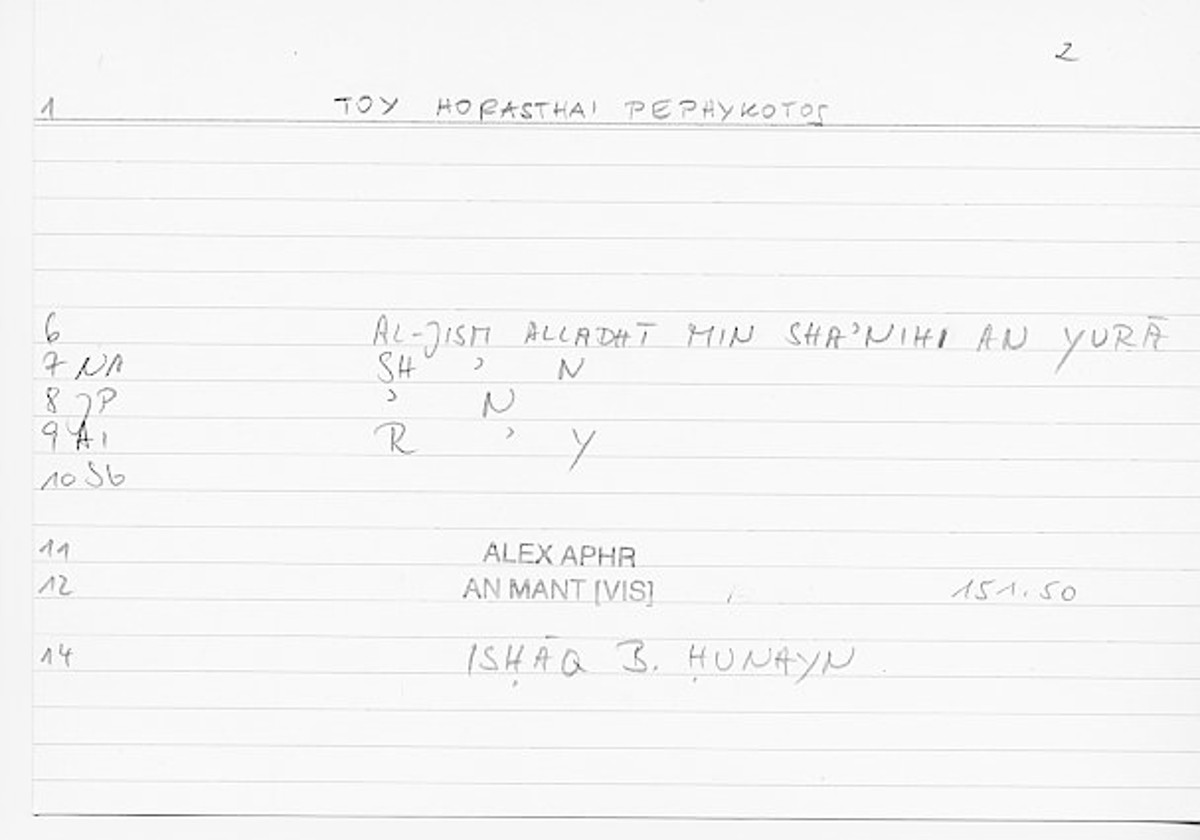 2
1 TOY HORASTHAI PEPHYKOTOS
6 AL-JISM ALLADHĪ MIN SHA'NIHI AN YURĀ
7 NA SH ' N
8 JP ' N
9 AI R ' Y
10 Sb
11 ALEX APHR
12 AN MANT [VIS] 151.50
14 ISḤĀQ B. ḤUNAYN